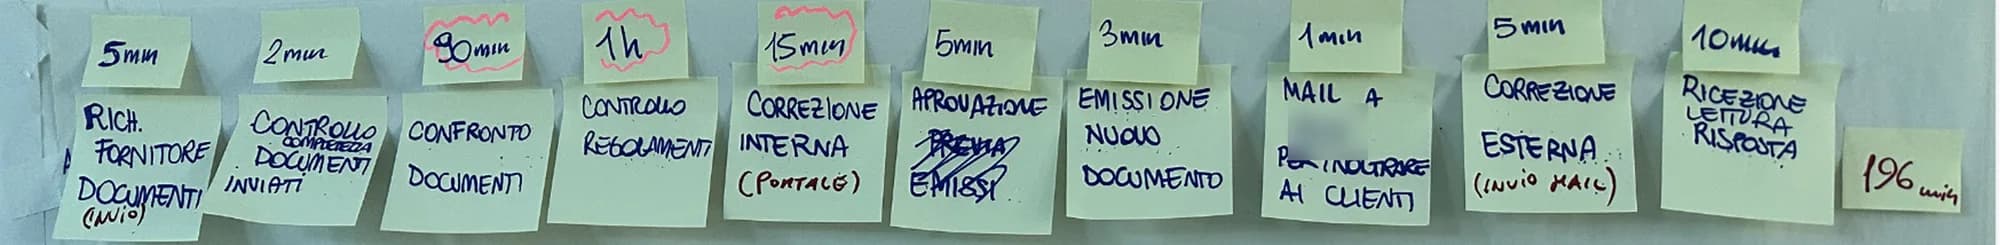 5min
2min
90min
1h
15min
5min
3min
1min
5min
10min
RICH.
FORNITORE
DOCUMENTI
(INVIO)
CONTROLLO
COMPLETEZZA
DOCUMENTI
INVIATI
CONFRONTO
DOCUMENTI
CONTROLLO
REGOLAMENTI
CORREZIONE
INTERNA
(PORTALE)
APROVAZIONE
PREVIA
EMISSI
EMISSIONE
NUOVO
DOCUMENTO
MAIL A
PER INOLTRARE
AI CLIENTI
CORREZIONE
ESTERNA
(INVIO MAIL)
RICEZIONE
LETTURA
RISPOSTA
196 min